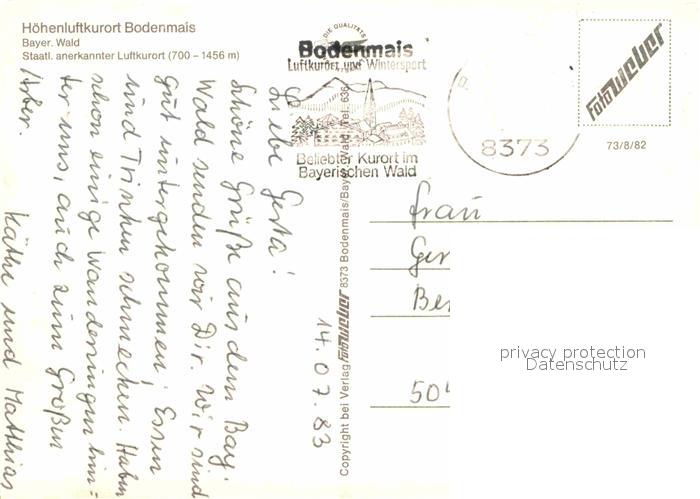 Höhenluftkurort Bodenmais
Bayer. Wald
Staatl. anerkannter Luftkurort (700 – 1456 m)
DIE QUALITÄTS
Bodenmais
Luftkurort und Wintersport
Beliebter Kurort im
Bayerischen Wald
8373
fotoweber
73/8/82
14.07.83
Liebe Gerta!
Schöne Grüße aus dem Bay.
Wald senden wir Dir. Wir sind
gut untergekommen! Essen
und Trinken schmecken. Haben
schon einige Wanderungen hin=
ter uns, auch zum Großen
Arber.
Käthe und Matthias
Copyright bei Verlag fotoweber 8373 Bodenmais/Bayer. Wald, Tel. 636
Frau
Ger
Be
50
privacy protection
Datenschutz